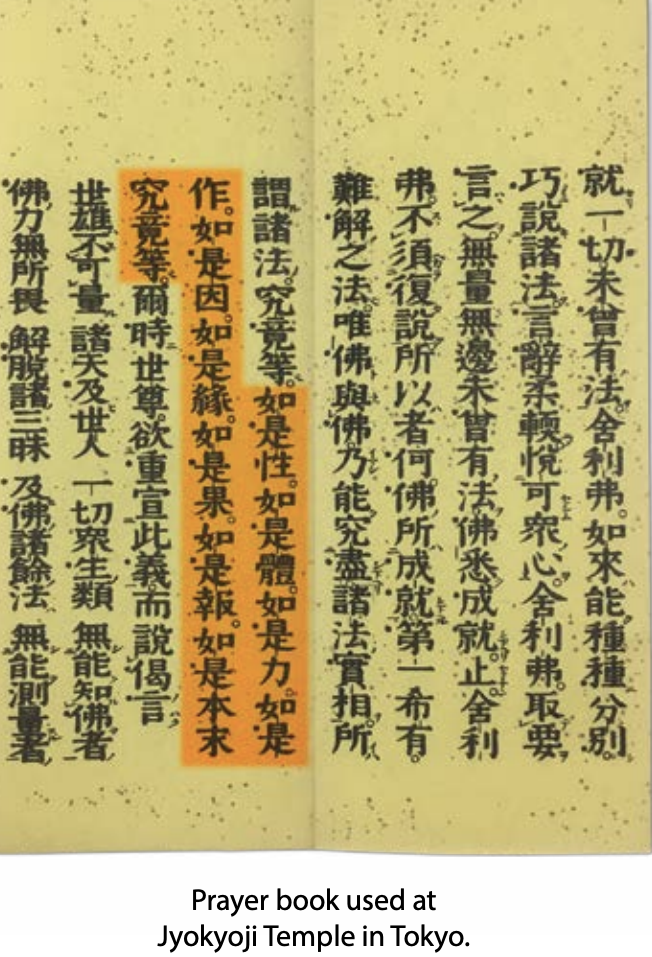 就一切未曾有法。舍利弗。如來能。種種分別。
巧說諸法。言辭柔輭。悅可衆心。舍利弗。取要
言之。無量無邊未曾有法。佛悉成就。止。舍利
弗。不須復說。所以者何。佛所成就。第一希有。
難解之法。唯佛與佛。乃能究盡。諸法實相。所
謂諸法。究竟等。如是性。如是體。如是力。如是
作。如是因。如是緣。如是果。如是報。如是本末
究竟等。爾時世尊。欲重宣此義。而說偈言
世雄不可量 諸天及世人 一切衆生類 無能知佛者
佛力無所畏 解脫諸三昧 及佛諸餘法 無能測量者
Prayer book used at
Jyokyoji Temple in Tokyo.